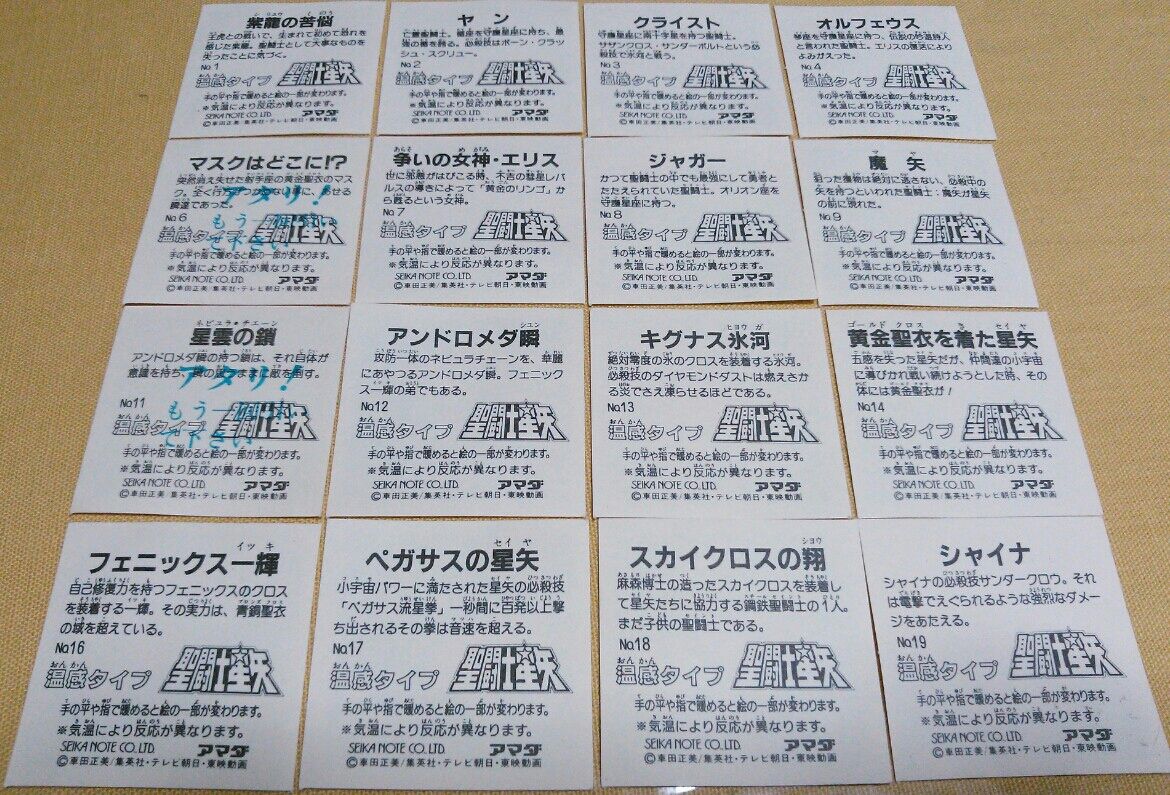 紫龍の苦悩
王虎との戦いで、生まれて初めて恐れを
感じた紫龍。聖闘士として大事なものを
失ったことに気づく。
No.1
温感タイプ 聖闘士星矢
手の平や指で暖めると絵の一部が変わります。
※気温により反応が異なります。
SEIKA NOTE CO.,LTD. アマダ
©車田正美/集英社・テレビ朝日・東映動画
ヤン
亡霊聖闘士。楯座を守護星座に持ち、最
強の楯を誇る。必殺技はボーン・クラッ
シュ・スクリュー。
No.2
温感タイプ 聖闘士星矢
手の平や指で暖めると絵の一部が変わります。
※気温により反応が異なります。
SEIKA NOTE CO.,LTD. アマダ
©車田正美/集英社・テレビ朝日・東映動画
クライスト
守護星座に南十字星を持つ聖闘士。
サザンクロス・サンダーボルトという必
殺技で氷河と戦う。
No.3
温感タイプ 聖闘士星矢
手の平や指で暖めると絵の一部が変わります。
※気温により反応が異なります。
SEIKA NOTE CO.,LTD. アマダ
©車田正美/集英社・テレビ朝日・東映動画
オルフェウス
琴座を守護星座に持つ、伝説の吟遊詩人
と言われた聖闘士。エリスの復活により
よみがえった。
No.4
温感タイプ 聖闘士星矢
手の平や指で暖めると絵の一部が変わります。
※気温により反応が異なります。
SEIKA NOTE CO.,LTD. アマダ
©車田正美/集英社・テレビ朝日・東映動画
マスクはどこに!?
突然消え失せた射手座の黄金聖衣のマス
ク。全く行方のつかめない事に、あせる
瞬達であった。
アタリ!
もう一個
で下さい
No.6
温感タイプ 聖闘士星矢
手の平や指で暖めると絵の一部が変わります。
※気温により反応が異なります。
SEIKA NOTE CO.,LTD. アマダ
©車田正美/集英社・テレビ朝日・東映動画
争いの女神・エリス
世に邪悪がはびこる時、不吉の彗星レパ
ルスの導きによって「黄金のリンゴ」か
ら甦るという女神。
No.7
温感タイプ 聖闘士星矢
手の平や指で暖めると絵の一部が変わります。
※気温により反応が異なります。
SEIKA NOTE CO.,LTD. アマダ
©車田正美/集英社・テレビ朝日・東映動画
ジャガー
かつて聖闘士の中でも最強にして勇者と
たたえられていた聖闘士。オリオン座を
守護星座に持つ。
No.8
温感タイプ 聖闘士星矢
手の平や指で暖めると絵の一部が変わります。
※気温により反応が異なります。
SEIKA NOTE CO.,LTD. アマダ
©車田正美/集英社・テレビ朝日・東映動画
魔矢
狙った獲物は絶対に逃さない、必殺中の
矢を持つといわれた聖闘士・魔矢が星矢
の前に現れた。
No.9
温感タイプ 聖闘士星矢
手の平や指で暖めると絵の一部が変わります。
※気温により反応が異なります。
SEIKA NOTE CO.,LTD. アマダ
©車田正美/集英社・テレビ朝日・東映動画
ネビュラ・チェーン
星雲の鎖
アンドロメダ瞬の持つ鎖は、それ自体が
意識を持ち、瞬の思うままに敵を倒す。
アタリ!
もう一個
で下さい
No.11
温感タイプ 聖闘士星矢
手の平や指で暖めると絵の一部が変わります。
※気温により反応が異なります。
SEIKA NOTE CO.,LTD. アマダ
©車田正美/集英社・テレビ朝日・東映動画
シュン
アンドロメダ瞬
攻防一体のネビュラチェーンを、華麗
にあやつるアンドロメダ瞬。フェニック
ス一輝の弟でもある。
No.12
温感タイプ 聖闘士星矢
手の平や指で暖めると絵の一部が変わります。
※気温により反応が異なります。
SEIKA NOTE CO.,LTD. アマダ
©車田正美/集英社・テレビ朝日・東映動画
ヒョウガ
キグナス氷河
絶対零度の氷のクロスを装着する氷河。
必殺技のダイヤモンドダストは燃えさか
る炎でさえ凍らせるほどである。
No.13
温感タイプ 聖闘士星矢
手の平や指で暖めると絵の一部が変わります。
※気温により反応が異なります。
SEIKA NOTE CO.,LTD. アマダ
©車田正美/集英社・テレビ朝日・東映動画
ゴールド クロス き セイヤ
黄金聖衣を着た星矢
五感を失った星矢だが、仲間達の小宇宙
に導びかれ戦い続けようとした時、その
体には黄金聖衣が!
No.14
温感タイプ 聖闘士星矢
手の平や指で暖めると絵の一部が変わります。
※気温により反応が異なります。
SEIKA NOTE CO.,LTD. アマダ
©車田正美/集英社・テレビ朝日・東映動画
イッキ
フェニックス一輝
自己修復力を持つフェニックスのクロス
を装着する一輝。その実力は、青銅聖衣
の域を超えている。
No.16
おんかん
温感タイプ 聖闘士星矢
手の平や指で暖めると絵の一部が変わります。
※気温により反応が異なります。
SEIKA NOTE CO.,LTD. アマダ
©車田正美/集英社・テレビ朝日・東映動画
セイヤ
ペガサスの星矢
小宇宙パワーに満たされた星矢の必殺技
「ペガサス流星拳」一秒間に百発以上撃
ち出されるその拳は音速を超える。
No.17
おんかん
温感タイプ 聖闘士星矢
手の平や指で暖めると絵の一部が変わります。
※気温により反応が異なります。
SEIKA NOTE CO.,LTD. アマダ
©車田正美/集英社・テレビ朝日・東映動画
ショウ
スカイクロスの翔
麻森博士の造ったスカイクロスを装着し
て星矢たちに協力する鋼鉄聖闘士の1人。
まだ子供の聖闘士である。
No.18
おんかん
温感タイプ 聖闘士星矢
手の平や指で暖めると絵の一部が変わります。
※気温により反応が異なります。
SEIKA NOTE CO.,LTD. アマダ
©車田正美/集英社・テレビ朝日・東映動画
シャイナ
シャイナの必殺技サンダークロウ。それ
は電撃でえぐられるような強烈なダメー
ジをあたえる。
No.19
おんかん
温感タイプ 聖闘士星矢
手の平や指で暖めると絵の一部が変わります。
※気温により反応が異なります。
SEIKA NOTE CO.,LTD. アマダ
©車田正美/集英社・テレビ朝日・東映動画